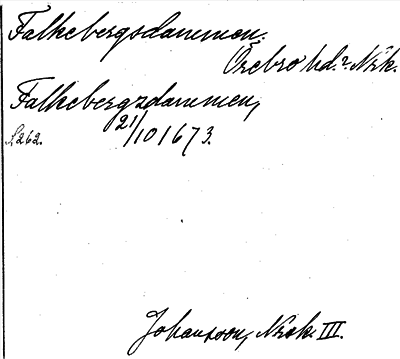 Falkebergsdammen.
Örebro hd. Nrk.
Falkebergzdammen,
21/10 1673.
L262.
Johansson, Nrk. III.